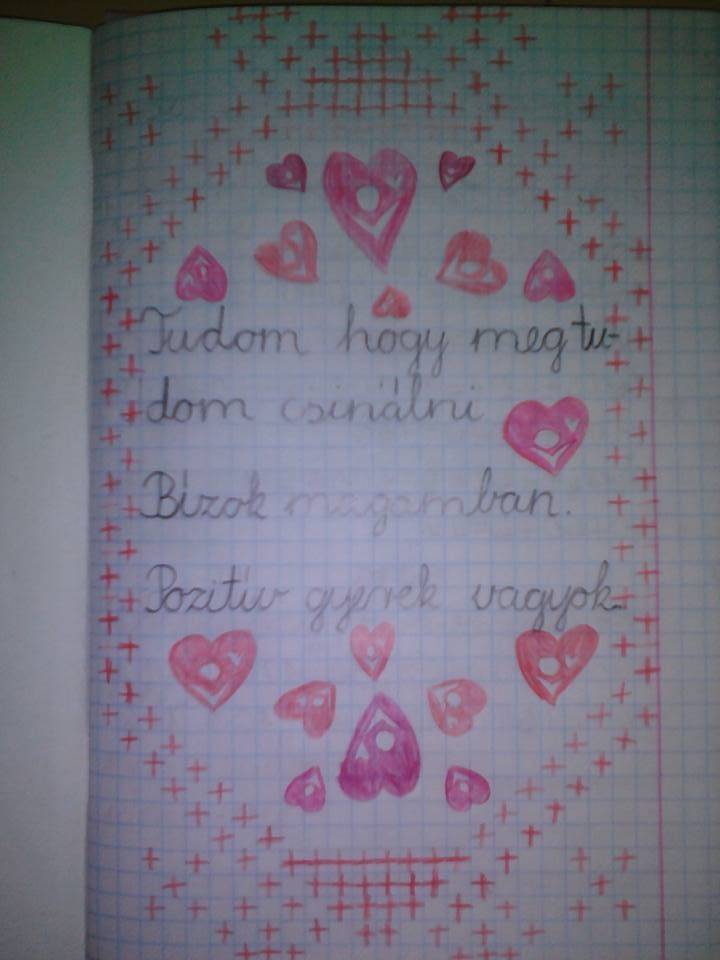 Tudom hogy meg tu-
dom csinálni
Bízok magamban.
Pozitív gyerek vagyok.